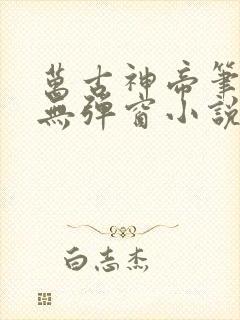 萬古神帝筆
無彈窗小說
白志杰